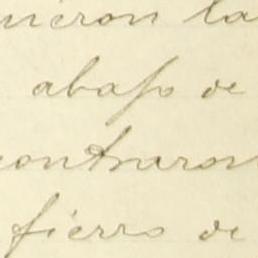 ieron la
abajo de
contraron
fierro de